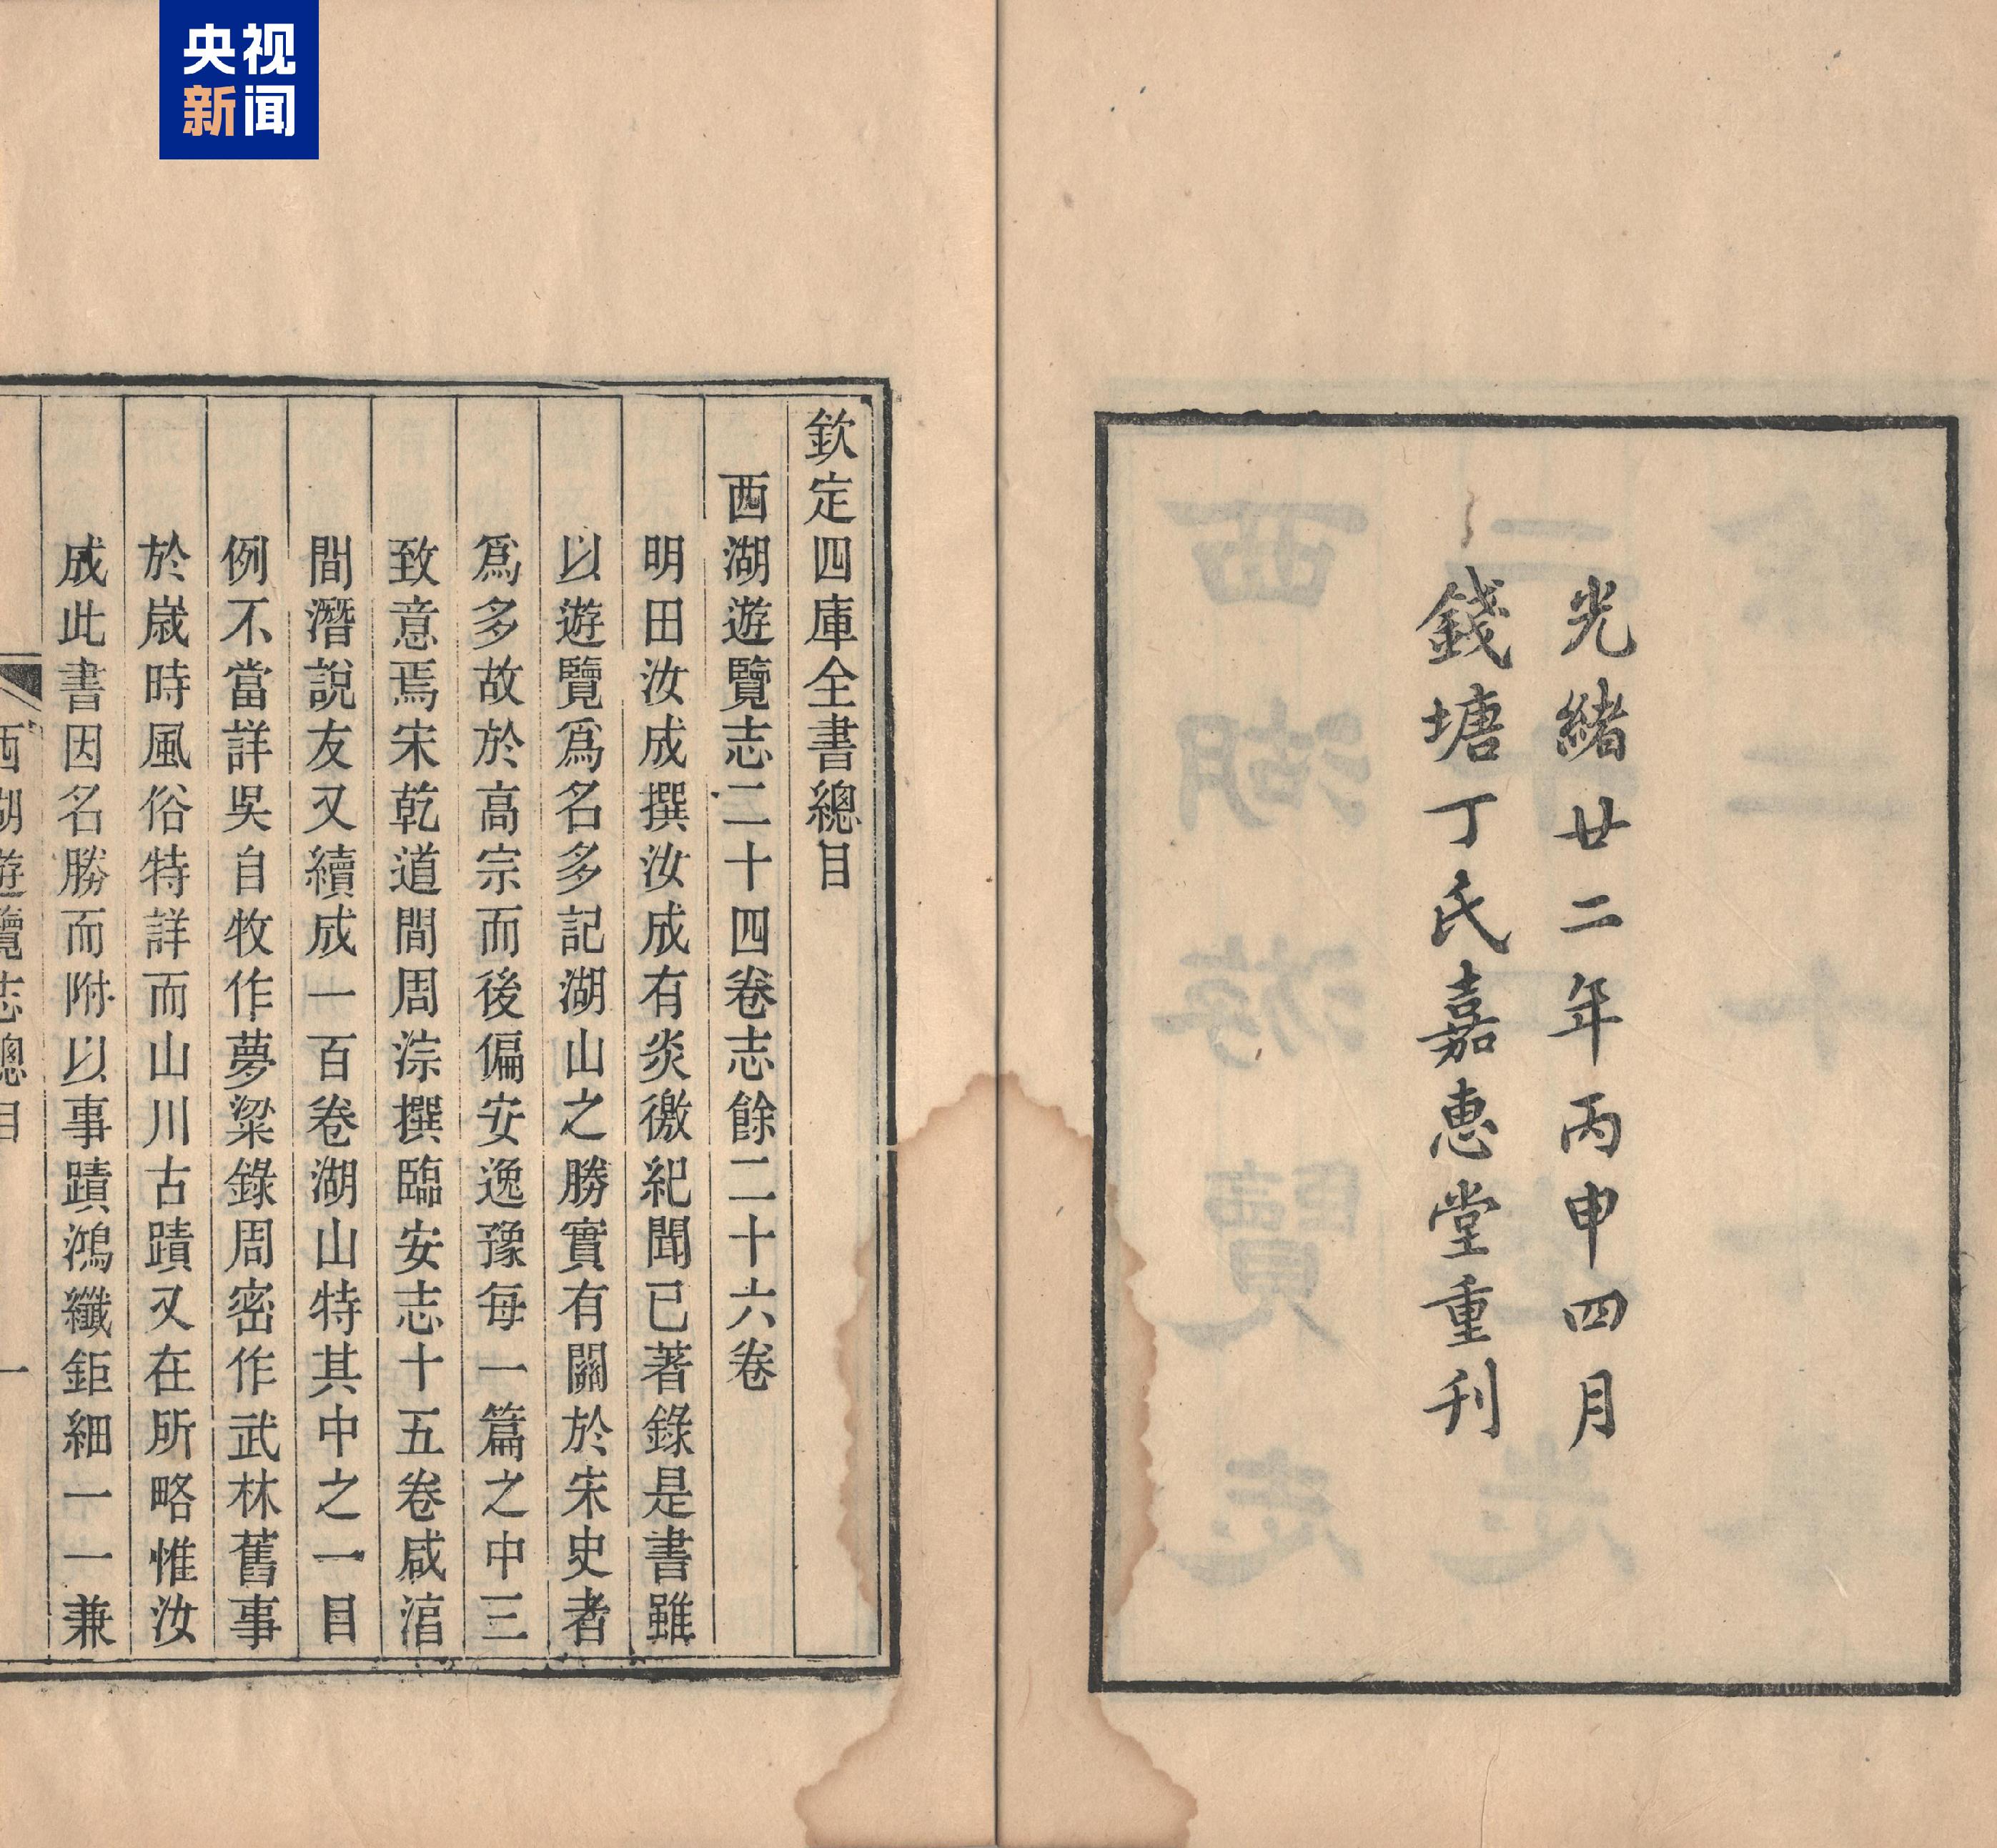 央视
新闻
光緒廿二年丙申四月
錢塘丁氏嘉惠堂重刋
欽定四庫全書總目
西湖遊覽志二十四卷志餘二十六卷
明田汝成撰汝成有炎徼紀聞已著錄是書雖
以遊覽爲名多記湖山之勝實有關於宋史者
爲多故於高宗而後偏安逸豫每一篇之中三
致意焉宋乾道間周淙撰臨安志十五卷咸淳
間潛說友又續成一百卷湖山特其中之一目
例不當詳吳自牧作夢粱錄周密作武林舊事
於歲時風俗特詳而山川古蹟又在所略惟汝
成此書因名勝而附以事蹟鴻纖鉅細一一兼
西湖遊覽志總目
一